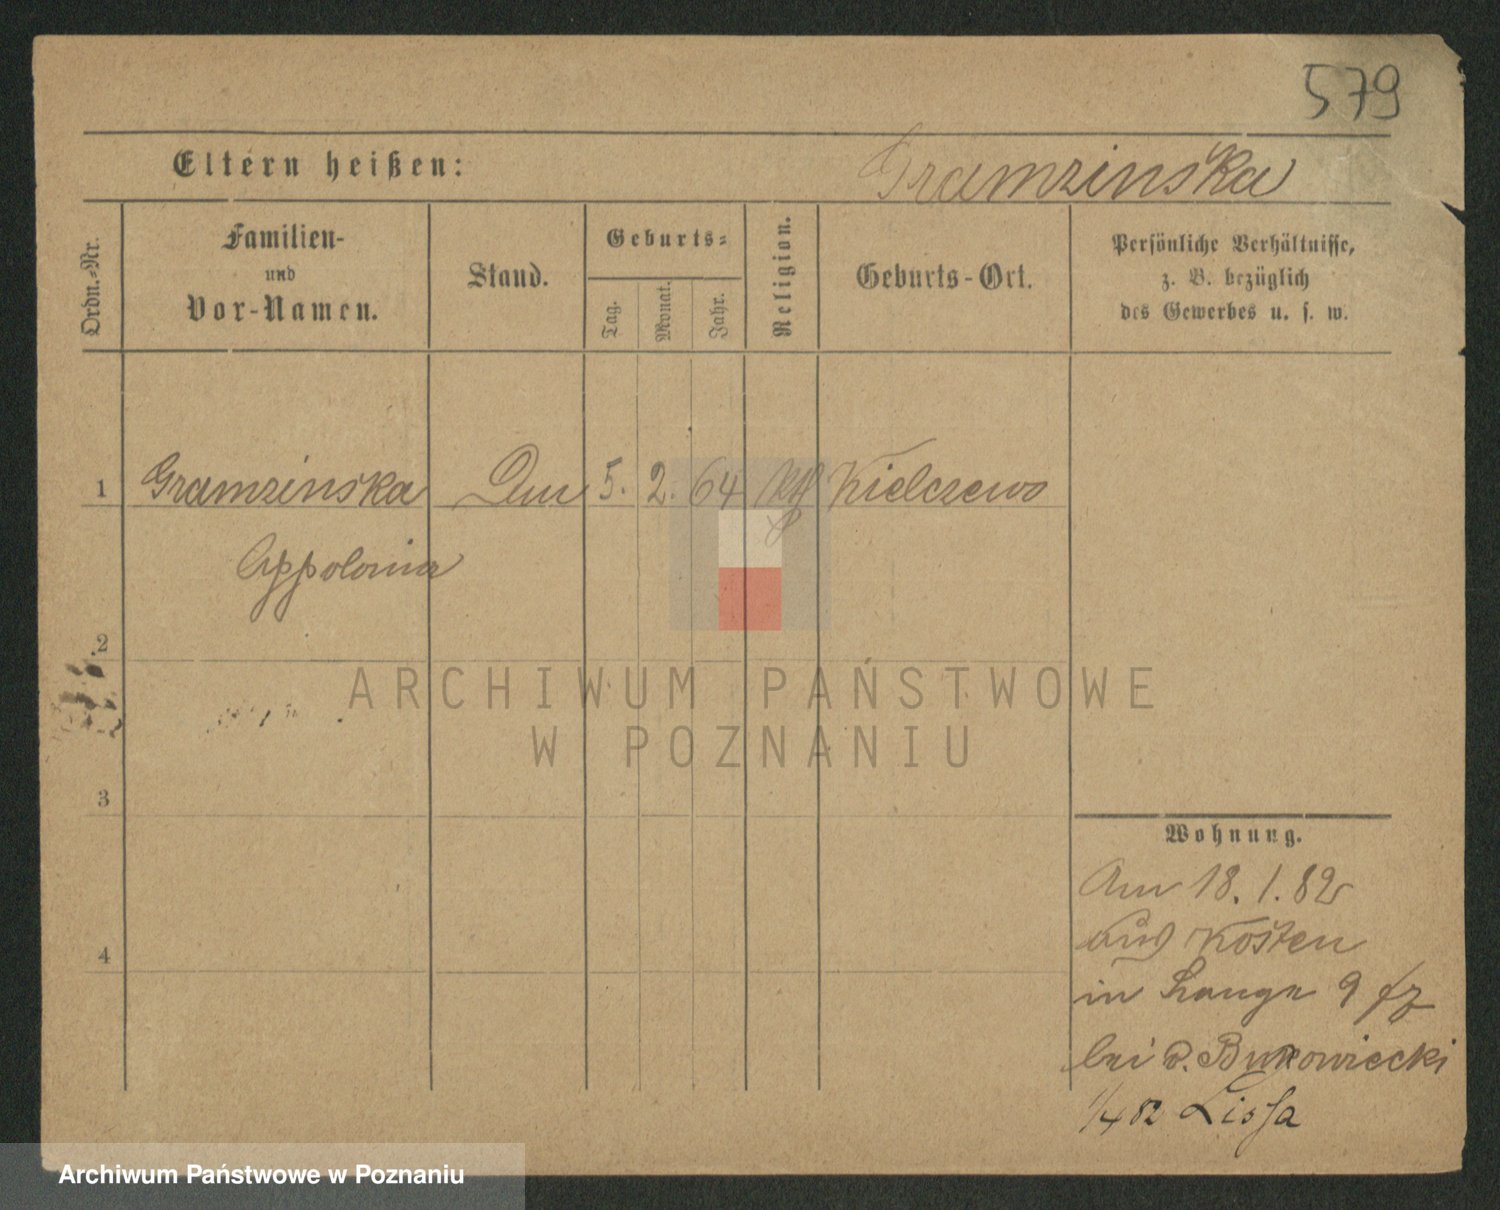 579
Eltern heißen:
Gramzinska
Ordn.-Nr.
Familien-
und
Vor-Namen.
Stand.
Geburts-
Tag.
Monat.
Jahr.
Religion.
Geburts-Ort.
Persönliche Verhältnisse,
z. B. bezüglich
des Gewerbes u. s. w.
1 Gramzinska 5. 2. 64 Kielczewo
Appolonia
2
ARCHIWUM PAŃSTWOWE
W POZNANIU
3
Wohnung.
Am 18.1.82
aus Kosten
in Lange 9
bei v. Bukowiecki
1/4 82 Lissa
4
Archiwum Państwowe w Poznaniu